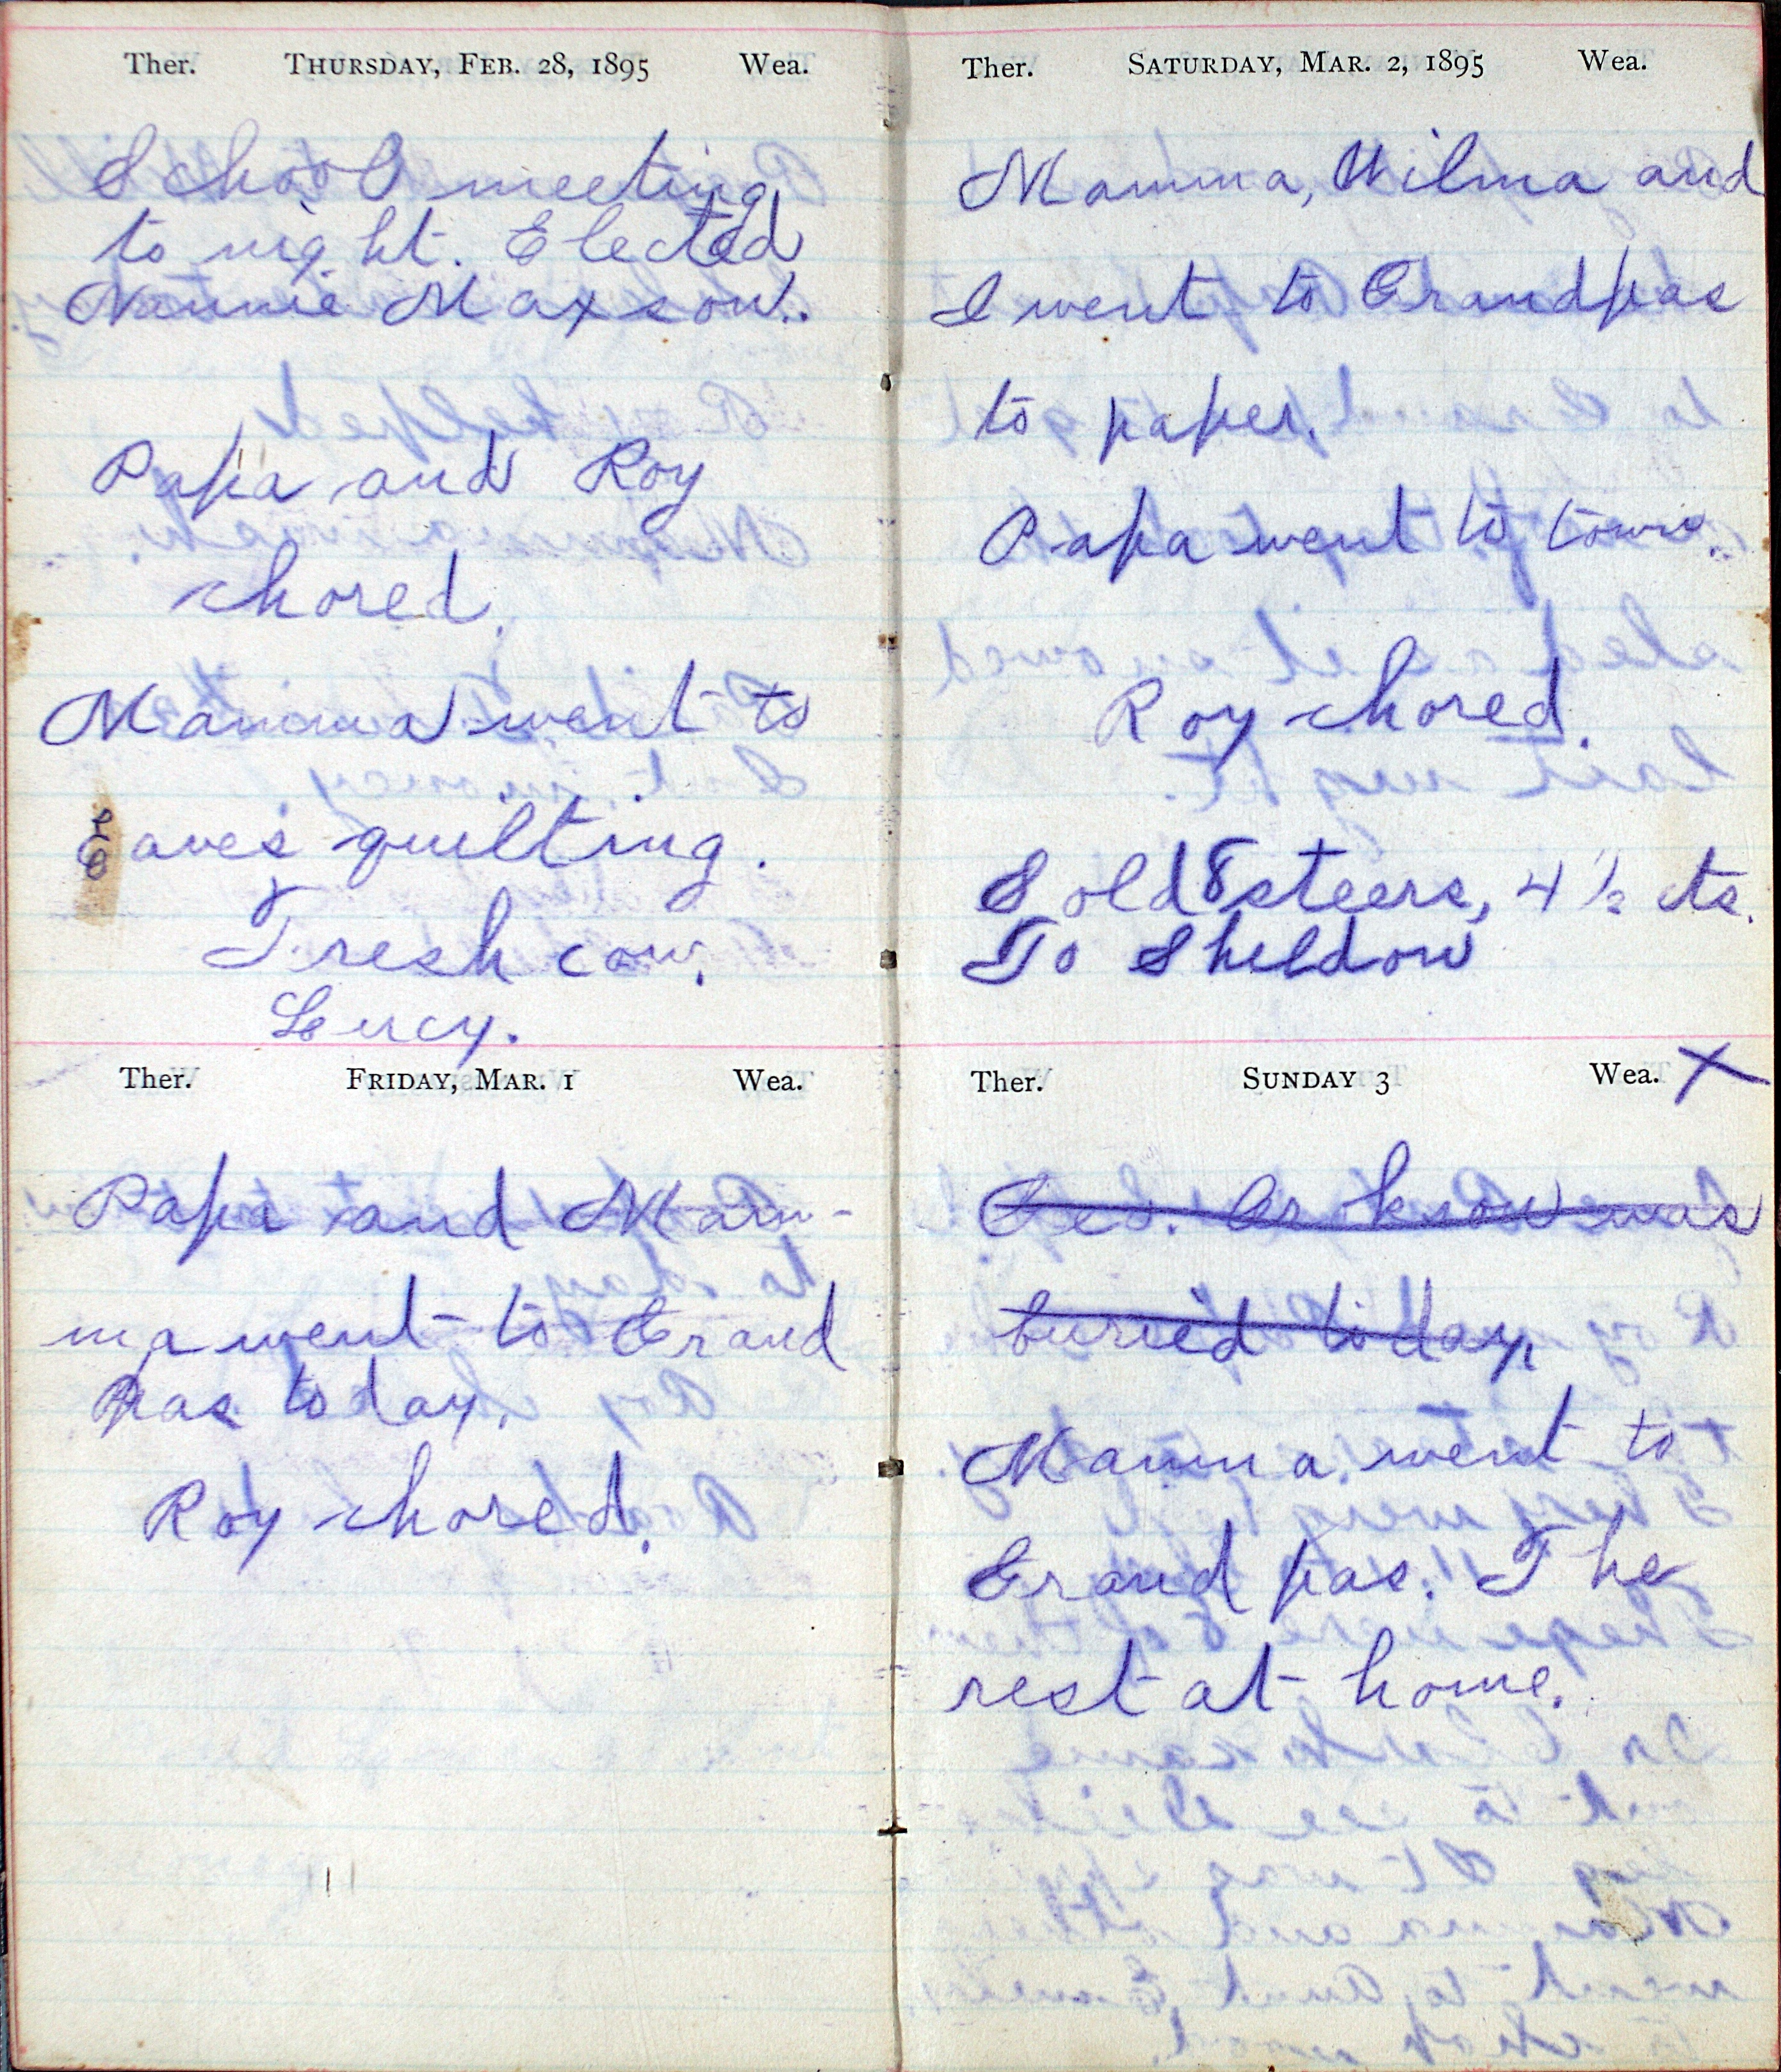 Ther. THURSDAY, FEB. 28, 1895 Wea.
School meeting
to night. Elected
Nannie Maxson.
Papa and Roy
chored.
Mamma went to
Eaves quilting.
Fresh cow.
Lucy.
Ther. FRIDAY, MAR. 1 Wea.
Papa and Mam-
ma went to Grand
pas today.
Roy chored.
Ther. SATURDAY, MAR. 2, 1895 Wea.
Mamma, Wilma and
I went to Grandpas
to paper.
Papa went to town.
Roy chored.
Sold 8 steers, 4 1/2 cts.
To Sheldon
Ther. SUNDAY 3 Wea. X
Geo. know was
buried today,
Mamma went to
Grand pas. The
rest at home.